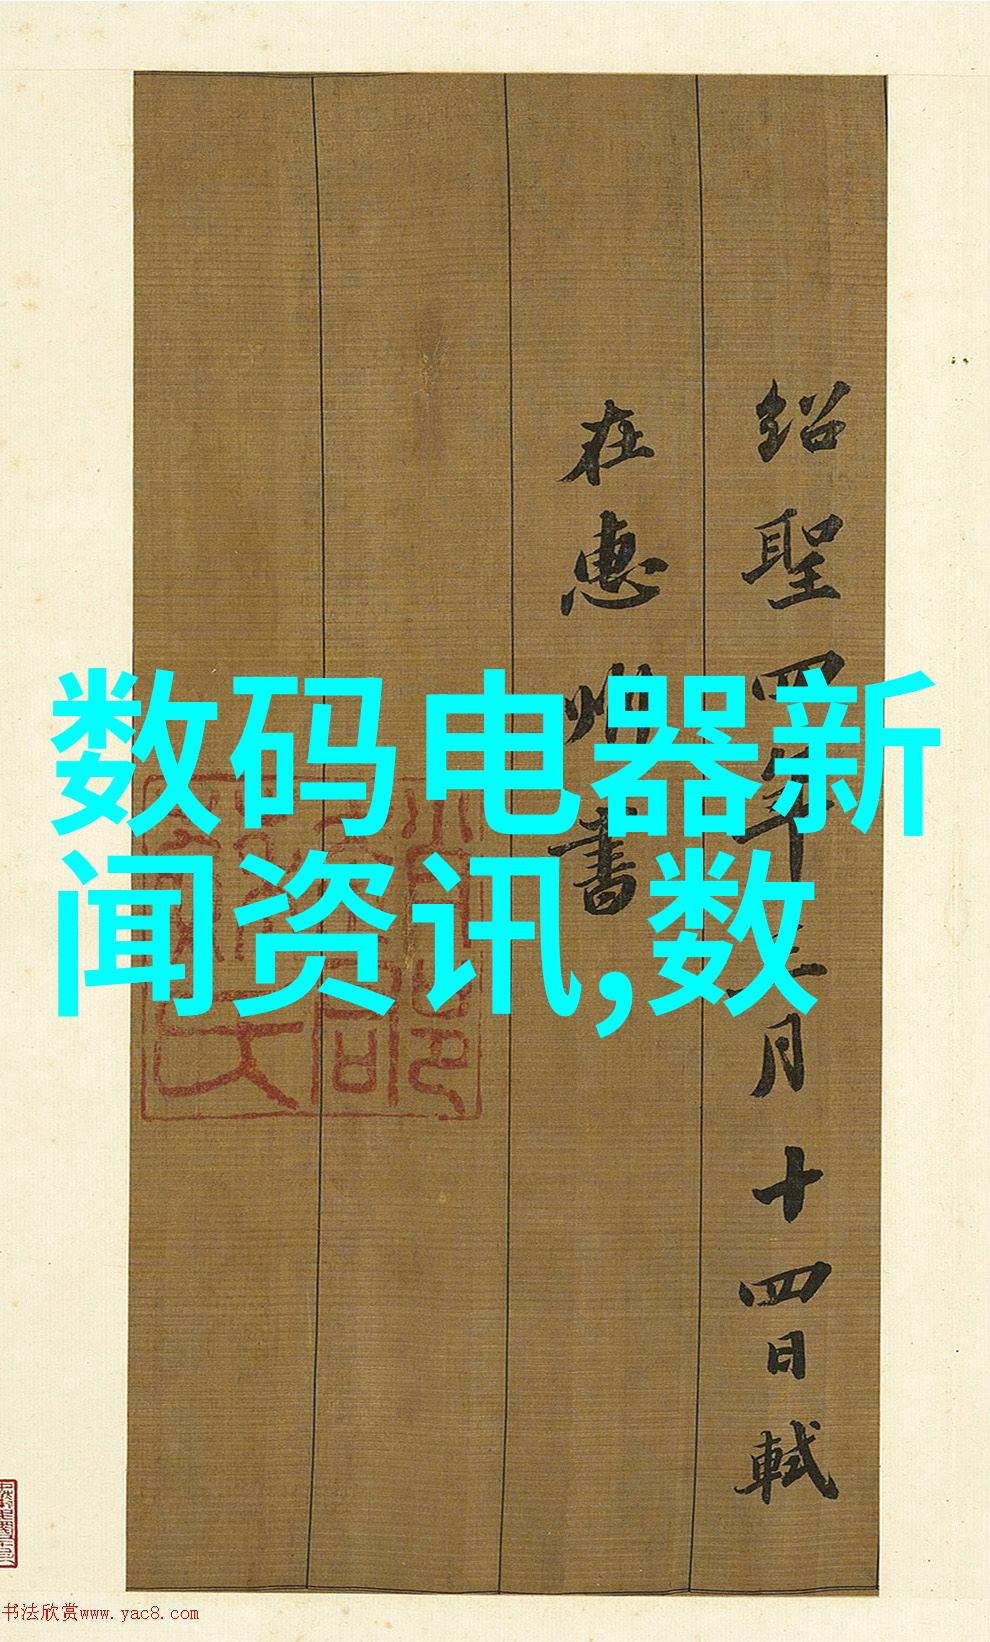 绍聖四年三月十四日軾
在惠州書
数码电器新
闻资讯,数
书法欣赏www.yac8.com